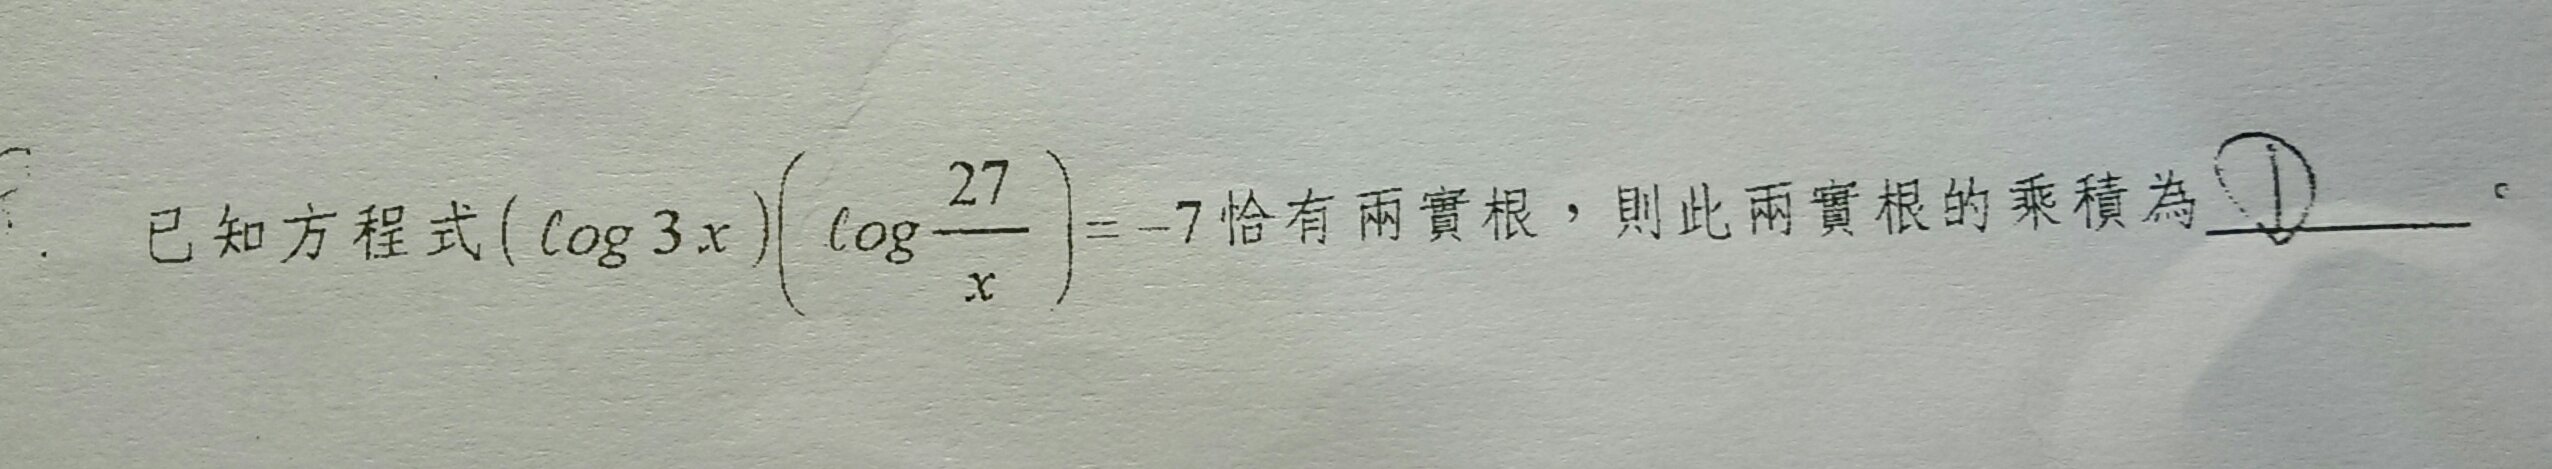 已知方程式(log 3x)(log 27/x) = -7恰有兩實根，則此兩實根的乘積為____。